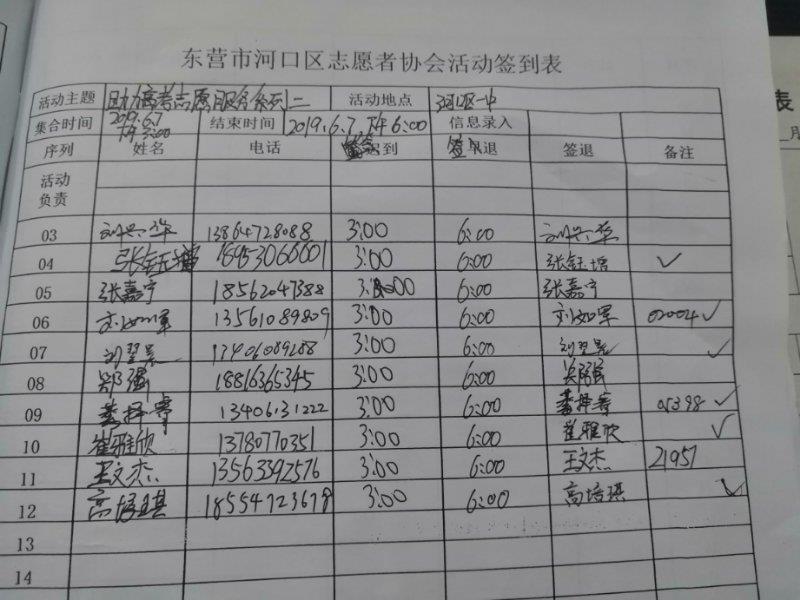 东营市河口区志愿者协会活动签到表
活动主题 助力高考志愿服务系列二 活动地点 河口区一中
集合时间 2019.6.7 下午3:00 结束时间 2019.6.7 下午6:00 信息录入
序列 姓名 电话 签到 签退 签退 备注
活动
负责
03 刘兴华 13864728088 3:00 6:00 刘兴华
04 张钰培 18453066001 3:00 6:00 张钰培 ✓
05 张嘉宁 18562047388 3:00 6:00 张嘉宁
06 刘如军 13561089809 3:00 6:00 刘如军 02004 ✓
07 刘翌晨 3:00 6:00 刘翌晨 ✓
08 郑强 18816365345 3:00 6:00 郑强
09 13406131222 3:00 6:00 05398 ✓
10 崔雅欣 13780770351 3:00 6:00 崔雅欣 ✓
11 王文杰 13563392576 3:00 6:00 王文杰 21957
12 高培琪 18554723678 3:00 6:00 高培琪 ✓
13
14
表
月